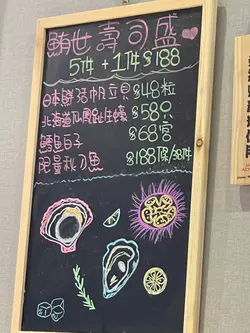 鮪世壽司盛
5件+1件 $188
日本鮮活帆立貝 $48粒
北海道仙鳳趾生蠔 $58只
鱈魚白子 $68客
限量秋刀魚 $188條/38件